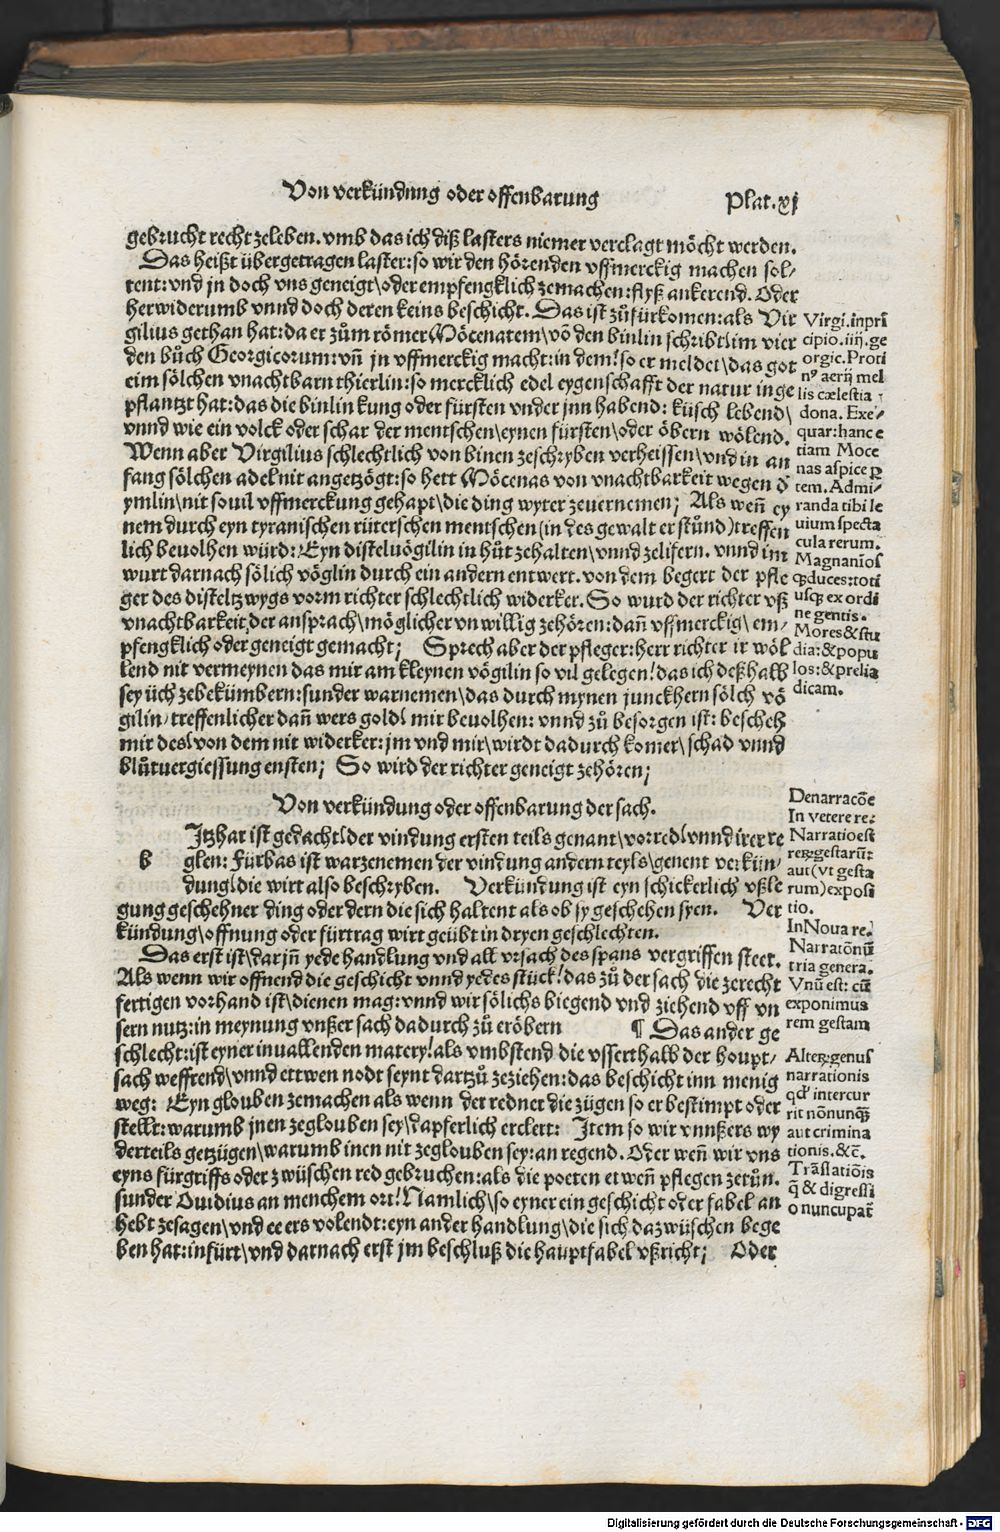 Von verkündung oder offenbarung
Plat. xj
gebrucht recht zeleben. vmb das ich diß lasters niemer verclagt möcht werden.
Das heißt übergetragen laster: so wir den hörenden vffmerckig machen sol/
tent: vnd jn doch vns geneigt\ oder empfengklich zemachen: flyß ankerend. Oder
herwiderumb vnnd doch deren keins beschicht. Das ist zůfürkomen: als Vir
gilius gethan hat: da er zům römer Mòcenatem\ vō den binlin schribt\ im vier
den bůch Georgicorum: vn̄ jn vffmerckig macht: in dem! so er meldet\ das got
eim sölchen vnachtbarn thierlin: so mercklich edel eygenschafft der natur inge
pflantzt hat: das die binlin kung oder fürsten vnder jnn habend: küsch lebend\
vnnd wie ein volck oder schar der mentschen\ eynen fürsten\ oder öbern wölend.
Wenn aber Virgilius schlechtlich von binen zeschryben verheissen\ vnd in an
fang sölchen adel nit angetzögt: so hett Mòcenas von vnachtbarkeit wegen d̕
ymlin\ nit souil vffmerckung gehapt\ die ding wyter zeuernemen; Als wen̄ ey
nem durch eyn tyranischen rüterschen mentschen (in des gewalt er stůnd) treffen
lich beuolhen würd: Eyn disteluögilin in hůt zehalten\ vnnd zelifern. vnnd im
wurt darnach sölich vöglin durch ein andern entwert. von dem begert der pfle
ger des disteltzwygs vorm richter schlechtlich widerker. So wurd der richter vß
vnachtbarkeit der ansprach\ möglicher vnwillig zehören: dan̄ vffmerckig\ em/
pfengklich oder geneigt gemacht; Sprech aber der pfleger: herr richter ir wöl
lend nit vermeynen das mir am kleynen vögilin so vil gelegen! das ich deßhalb
sey üch zebekümbern: sunder warnemen\ das durch mynen junckhern sölch vö
gilin/ treffenlicher dan̄ wers gold\ mir beuolhen: vnnd zů besorgen ist: bescheh
mir des\ von dem nit widerker: jm vnd mir\ wirdt dadurch komer\ schad vnnd
blůtuergiessung ensten; So wird der richter geneigt zehören;
Virgi. in pri̅
cipio. iiij. ge
orgic. Proti
nꝰ aerij mel
lis cælestia
dona. Exe/
quar: hanc e
tiam Moce
nas aspice ꝑ
tem. Admi/
randa tibi le
uium specta
cula rerum.
Magnani̅os
qꝫ duces: toti
usqꝫ ex ordi
ne gentis.
Mores & stu
dia: & popu
los: & prelia
dicam.
Von verkündung oder offenbarung der sach.
Jtzhar ist gedacht\ der vindung ersten teils genant\ vorred\ vnnd irer re
b glen: Fürbas ist warzenemen der vindung andern teyls\ genent verkün/
dung\ die wirt also beschryben. Verkündung ist eyn schickerlich vßle
gung geschehner ding oder dern die sich haltent als ob sy geschehen syen. Ver
kündung\ offnung oder fürtrag wirt geübt in dryen geschlechten.
Das erst ist\ darjn̄ yede handlung vnd all vrsach des spans vergriffen steet.
Als wenn wir offnend die geschicht vnnd yedes stück! das zů der sach die zerecht
fertigen vorhand ist\ dienen mag: vnnd wir sölichs biegend vnd ziehend vff vn
sern nutz: in meynung vnßer sach dadurch zů eröbern ¶ Das ander ge
schlecht: ist eyner inuallenden matery! als vmbstend die vsserthalb der houpt/
sach weffrend\ vnnd ettwen nodt seynt dartzů zeziehen: das beschicht inn menig
weg: Eyn glouben zemachen als wenn der redner die zügen so er bestimpt oder
stellt: warumb jnen zeglouben sey\ dapferlich erclert: Jtem so wir vnnßers wy
derteils getzügen\ warumb inen nit zeglouben sey: an regend. Oder wen̄ wir vns
eyns fürgriffs oder zwüschen red gebruchen: als die poeten etwen̄ pflegen zetůn.
sunder Ouidius an menchem ort! Namlich\ so eyner ein geschicht oder fabel an
hebt zesagen\ vnd ee ers volendt: eyn ander handlung\ die sich dazwüschen bege
ben hat: infürt\ vnd darnach erst jm beschluß die hauptfabel vßricht; Oder
Denarraco̅e
In vetere re:
Narratio est
reꝝ gestaru̅:
aut (vt gesta
rum) exposi
tio.
In Noua re.
Narrato̅nu̅
tria genera.
Vnu̅ est: cu̅
exponimus
rem gestam
Alteꝝ genus
narrationis
qd̕ intercur
rit no̅nunqꝫ
aut crimina
tionis. &c̅.
Tra̅slatio̅is
q̅ & digressi
o nuncupat̅
Digitalisierung gefördert durch die Deutsche Forschungsgemeinschaft - DFG